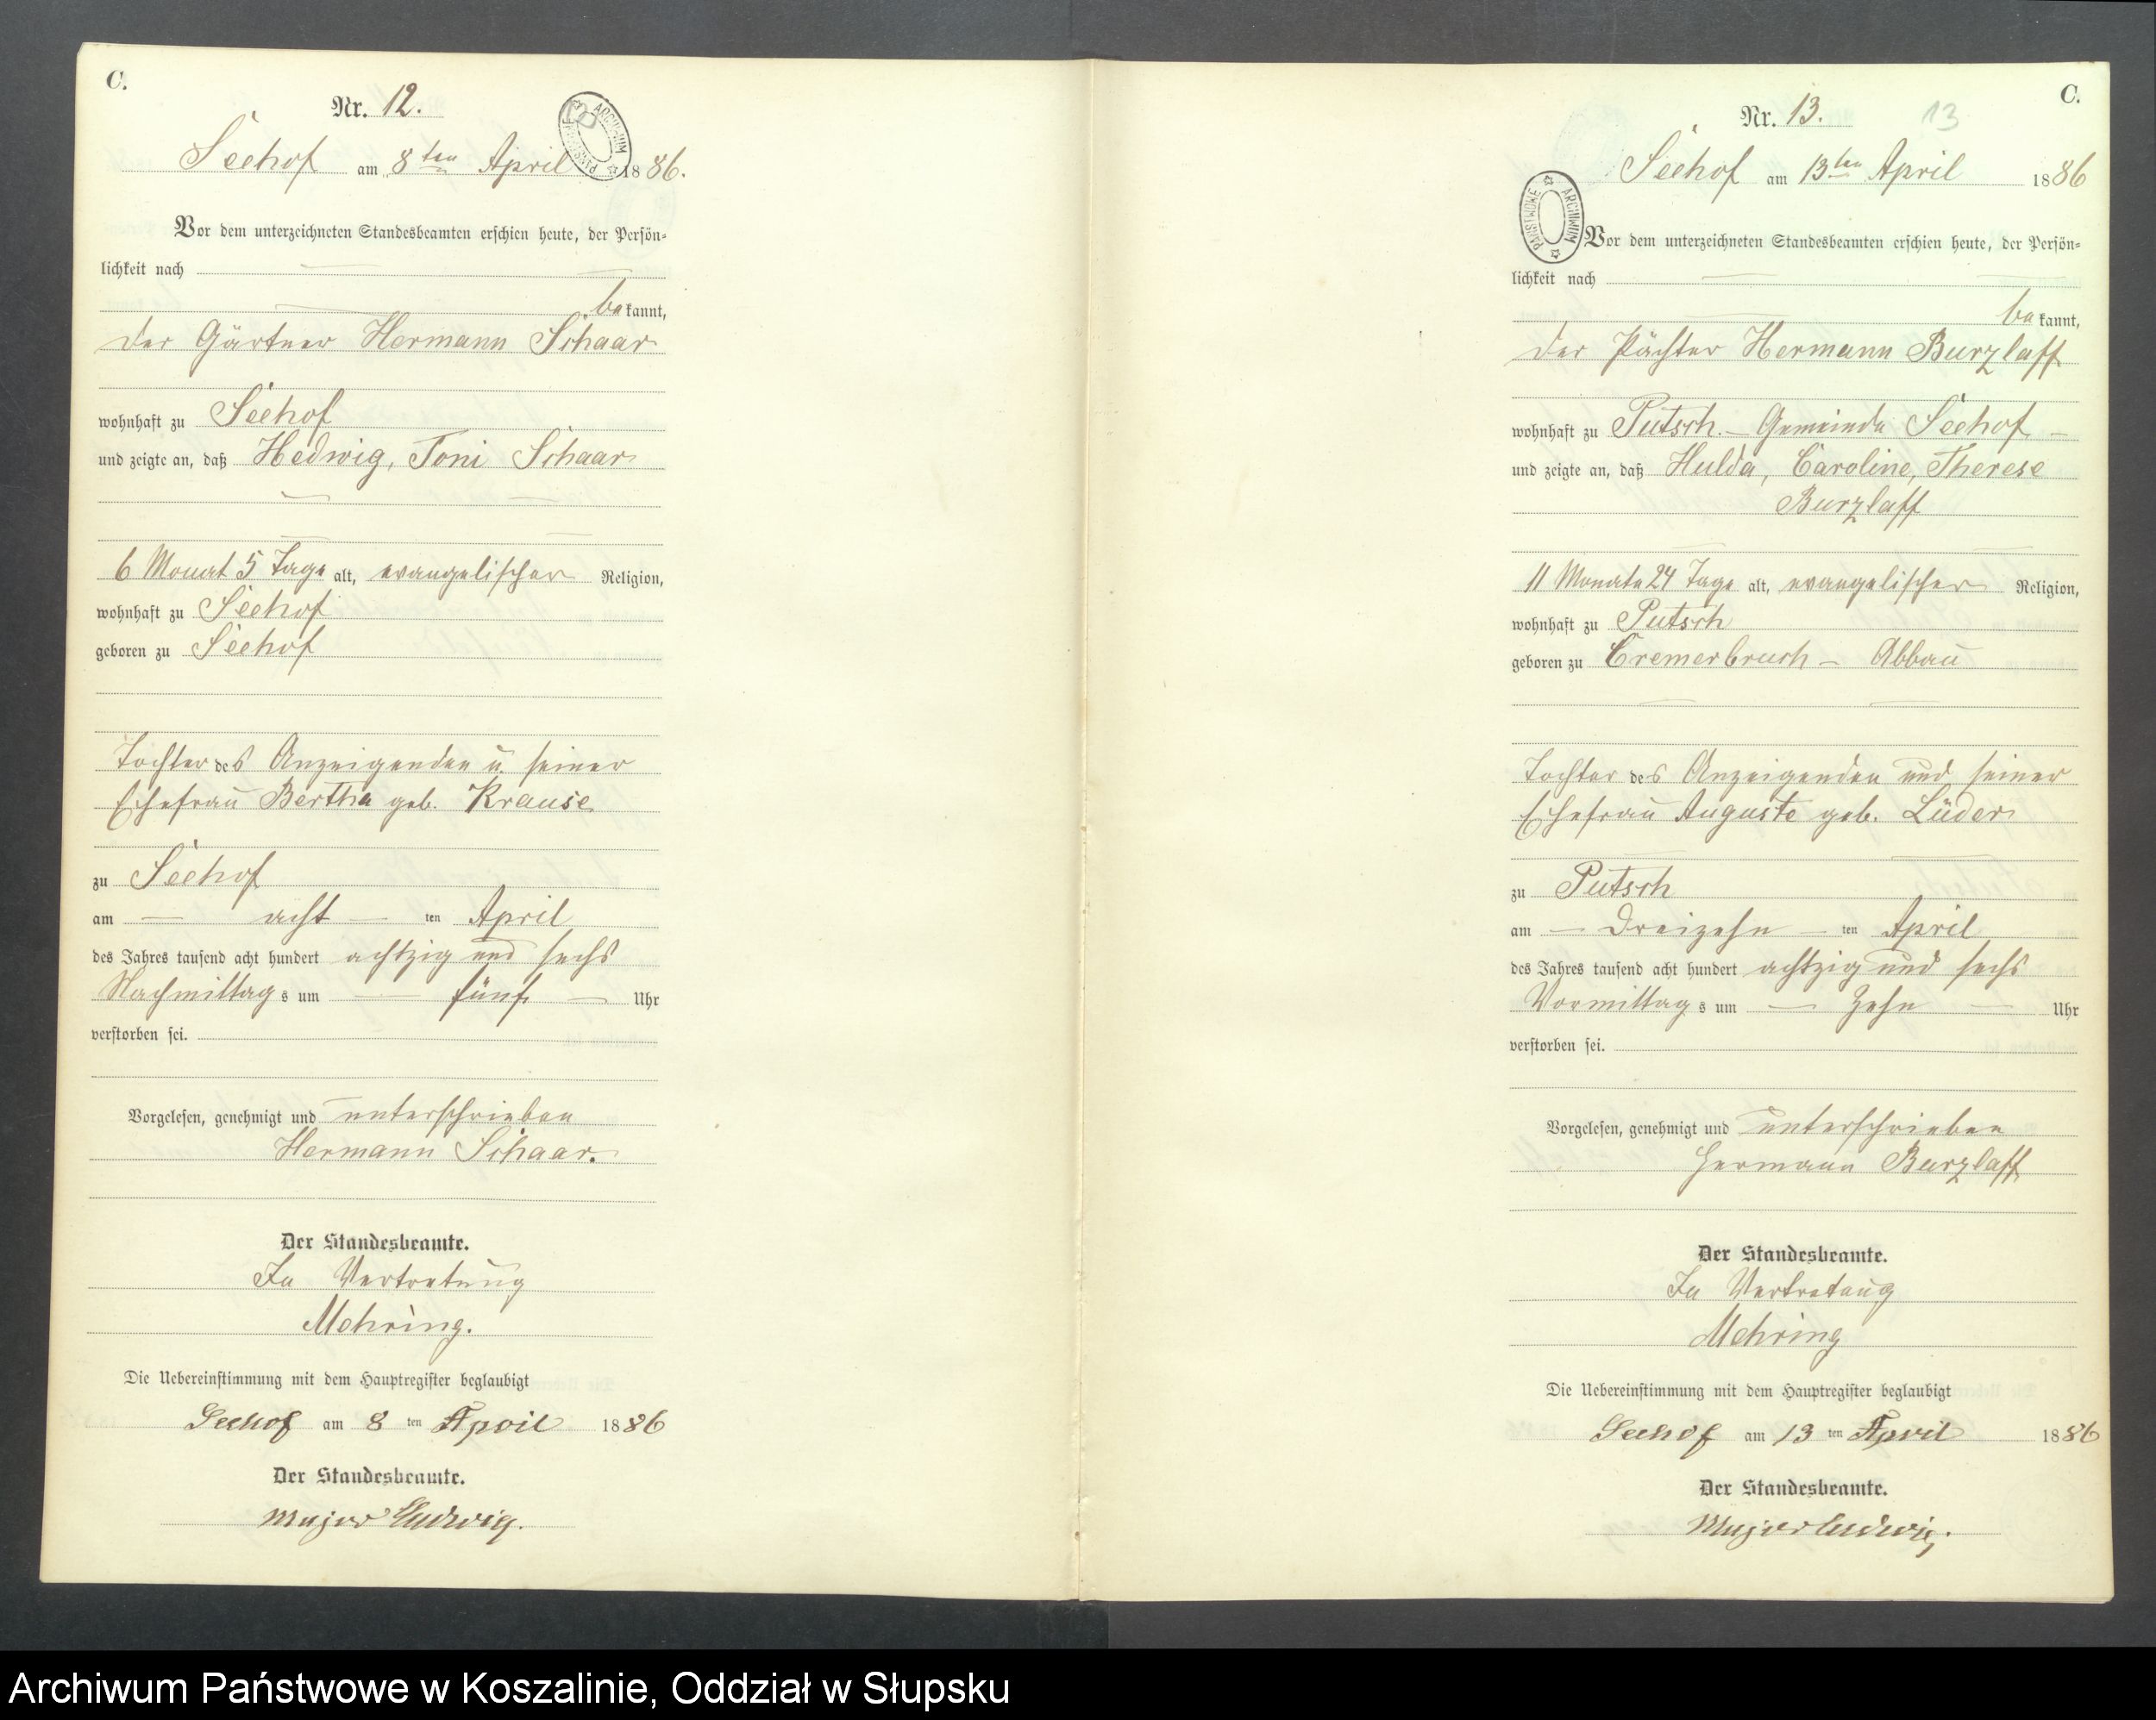 C.
Nr. 12.
ARCHIWUM PAŃSTWOWE
Seehof am 8ten April 1886.
Vor dem unterzeichneten Standesbeamten erschien heute, der Persön=
lichkeit nach
bekannt,
der Gärtner Hermann Schaar
wohnhaft zu Seehof
und zeigte an, daß Hedwig, Toni Schaar
6 Monat 5 Tage alt, evangelischer Religion,
wohnhaft zu Seehof
geboren zu Seehof
Tochter des Anzeigenden u. seiner
Ehefrau Bertha geb. Krause
zu Seehof
am acht ten April
des Jahres tausend acht hundert achtzig und sechs
Nachmittags um fünf Uhr
verstorben sei.
Vorgelesen, genehmigt und unterschrieben
Hermann Schaar.
Der Standesbeamte.
In Vertretung
Mehring.
Die Uebereinstimmung mit dem Hauptregister beglaubigt
Seehof am 8 ten April 1886
Der Standesbeamte.
Major Ludwig.
C.
Nr. 13. 13
Seehof am 13ten April 1886
ARCHIWUM PAŃSTWOWE
Vor dem unterzeichneten Standesbeamten erschien heute, der Persön=
lichkeit nach
bekannt,
der Pächter Hermann Burzlaff
wohnhaft zu Putsch. – Gemeinde Seehof –
und zeigte an, daß Hulda, Caroline, Therese
Burzlaff
11 Monate 24 Tage alt, evangelischer Religion,
wohnhaft zu Putsch
geboren zu Cremerbruch – Abbau
Tochter des Anzeigenden und seiner
Ehefrau Auguste geb. Lüder
zu Putsch
am – Dreizehn – ten April
des Jahres tausend acht hundert achtzig und sechs
Vormittags um – Zehn – Uhr
verstorben sei.
Vorgelesen, genehmigt und unterschrieben
Hermann Burzlaff
Der Standesbeamte.
In Vertretung
Mehring
Die Uebereinstimmung mit dem Hauptregister beglaubigt
Seehof am 13 ten April 1886
Der Standesbeamte.
Major Ludwig.
Archiwum Państwowe w Koszalinie, Oddział w Słupsku